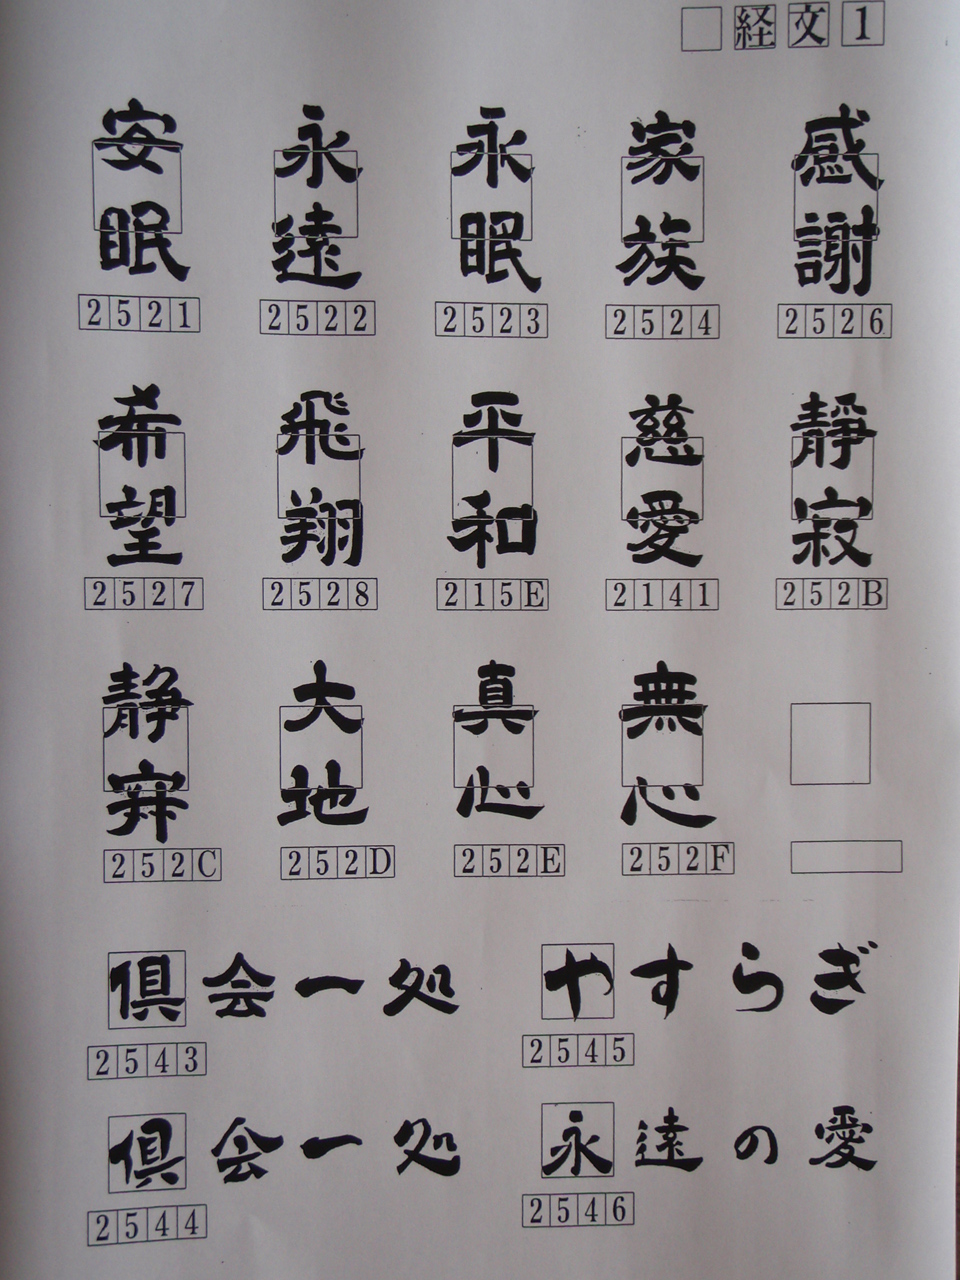 経文1
安眠 永遠 永眠 家族 感謝
2521 2522 2523 2524 2526
希望 飛翔 平和 慈愛 靜寂
2527 2528 215E 2141 252B
静寂 大地 真心 無心
252C 252D 252E 252F
倶会一処 やすらぎ
2543 2545
倶会一処 永遠の愛
2544 2546